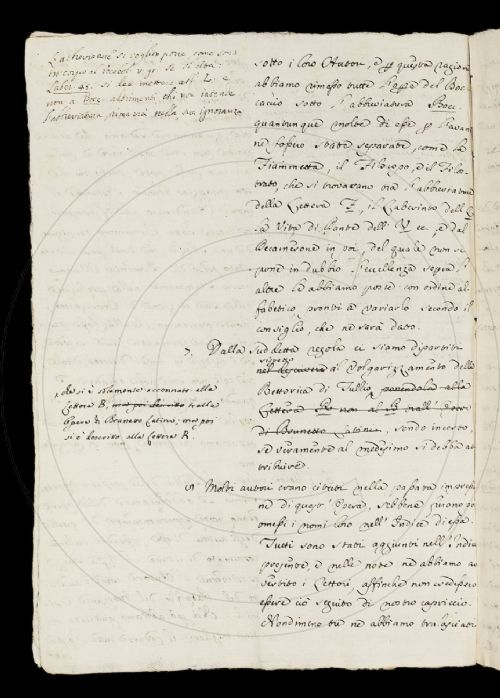 L'abbreviature si voglion porre come sono
in corpo al Vocabol. v. gr. se si cita
Laber. 45. si dee mettere all' L. e
non a Bocc. altrimenti chi non intende
l'abbreviatura rimarrà nella sua ignoranza
sotto i loro Autori, e p questa ragione
abbiamo rimesso tutte l'opere del Boc-
caccio sotto l'abbreviatura Bocc.
quantunque molte di esse p l'avanti
ne fossero state separate, come la
Fiammetta, il Filocopo, e il Filo-
strato, che si trovavano tra l'abbreviature
della Lettera F, il Laberinto dell' L
la Vita di Dante dell' V ec. e dal
Decamerone in poi, del quale non si
pone in dubbio l'eccellenza sopra l'
altre le abbiamo poste con ordine al-
fabetico, pronti a variarlo secondo il
consiglio, che ne sarà dato.
7. Dalla suddetta regola ci siamo dipartiti
rispetto
al Volgarizzamento della
Rettorica di Tullio, ponendola alla
Lettera B e non al B nell' Opere
di Brunetto Latini, sendo incerto,
se veramente al medesimo si debba at-
tribuire.
si è solamente accennato alla
Lettera B, tralle
Opere di Brunetto Latino; ma poi
si è descritto alla Lettera R.
8. Molti autori erano citati nella passata impressio-
ne di quest' Opera, sebbene furono poi
omessi i nomi loro nell' Indice di essa.
Tutti sono stati aggiunti nell' Indice
presente, e nelle note ne abbiamo av-
vertito i Lettori, affinchè non credessero
essere ciò seguito di nostro capriccio.
Nondimeno tre ne abbiamo tralasciati